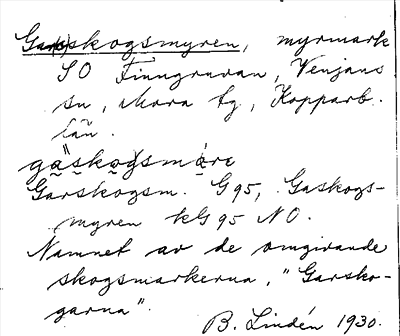 Gar(s)skogsmyren, myrmark
SO Finngruvan, Venjans
sn, Mora tg, Kopparb.
län.
gäskogsmöre
Garskogsm. G 95, Gaskogs-
myren kG 95 NO.
Namnet av de omgivande
skogsmarkerna, "Garsko-
garna".
B. Lindén 1930.